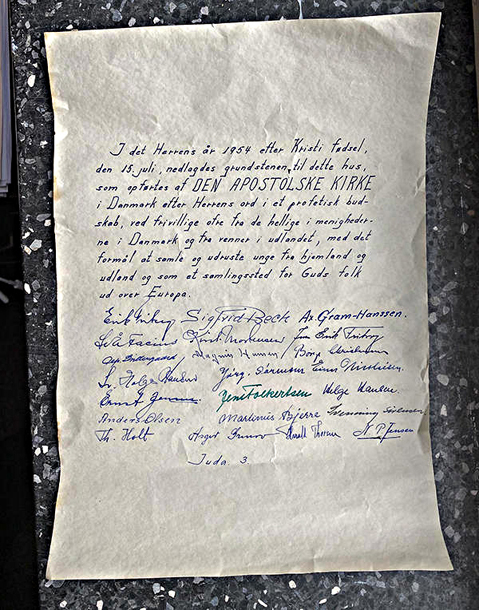 I det Herrens år 1954 efter Kristi fødsel,
den 15. juli, nedlagdes grundstenen til dette hus,
som opførtes af DEN APOSTOLSKE KIRKE
i Danmark efter Herrens ord i et profetisk bud-
skab, ved frivillige ofre fra de hellige i menigheder-
ne i Danmark og fra venner i udlandet, med det
formål at samle og udruste unge fra hjemland og
udland og som et samlingssted for Guds folk
ud over Europa.
Sigfrid Beck Ax. Gram-Hanssen.
Helge Hansen.
Anders Olsen Martinus Bjerre
Th. Holt N. P. Jensen
Juda. 3.